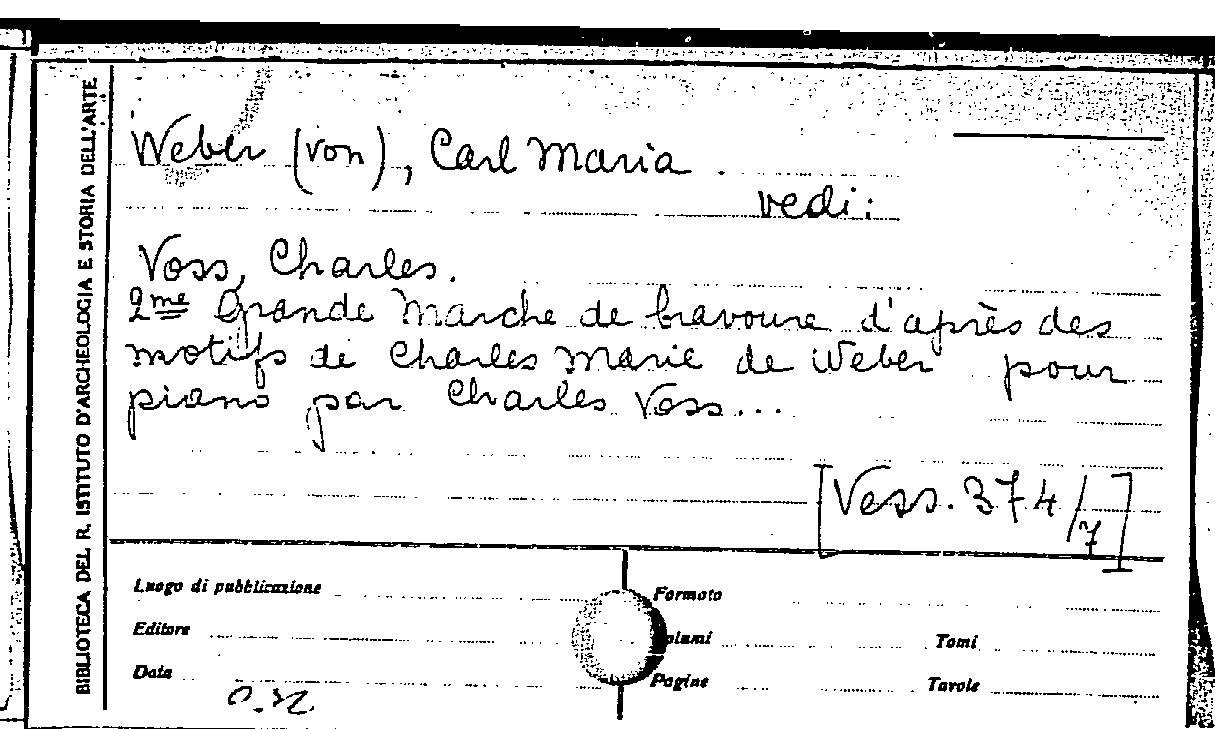 BIBLIOTECA DEL R. ISTITUTO D'ARCHEOLOGIA E STORIA DELL'ARTE
Weber (von), Carl Maria.
vedi:
Voss, Charles.
2me Grande Marche de bravoure d'après des
motifs de Charles Marie de Weber pour
piano par Charles Voss...
[Vess. 374/7]
Luogo di pubblicazione
Formato
Editore
olumi
Tomi
Data
Pagine
Tavole